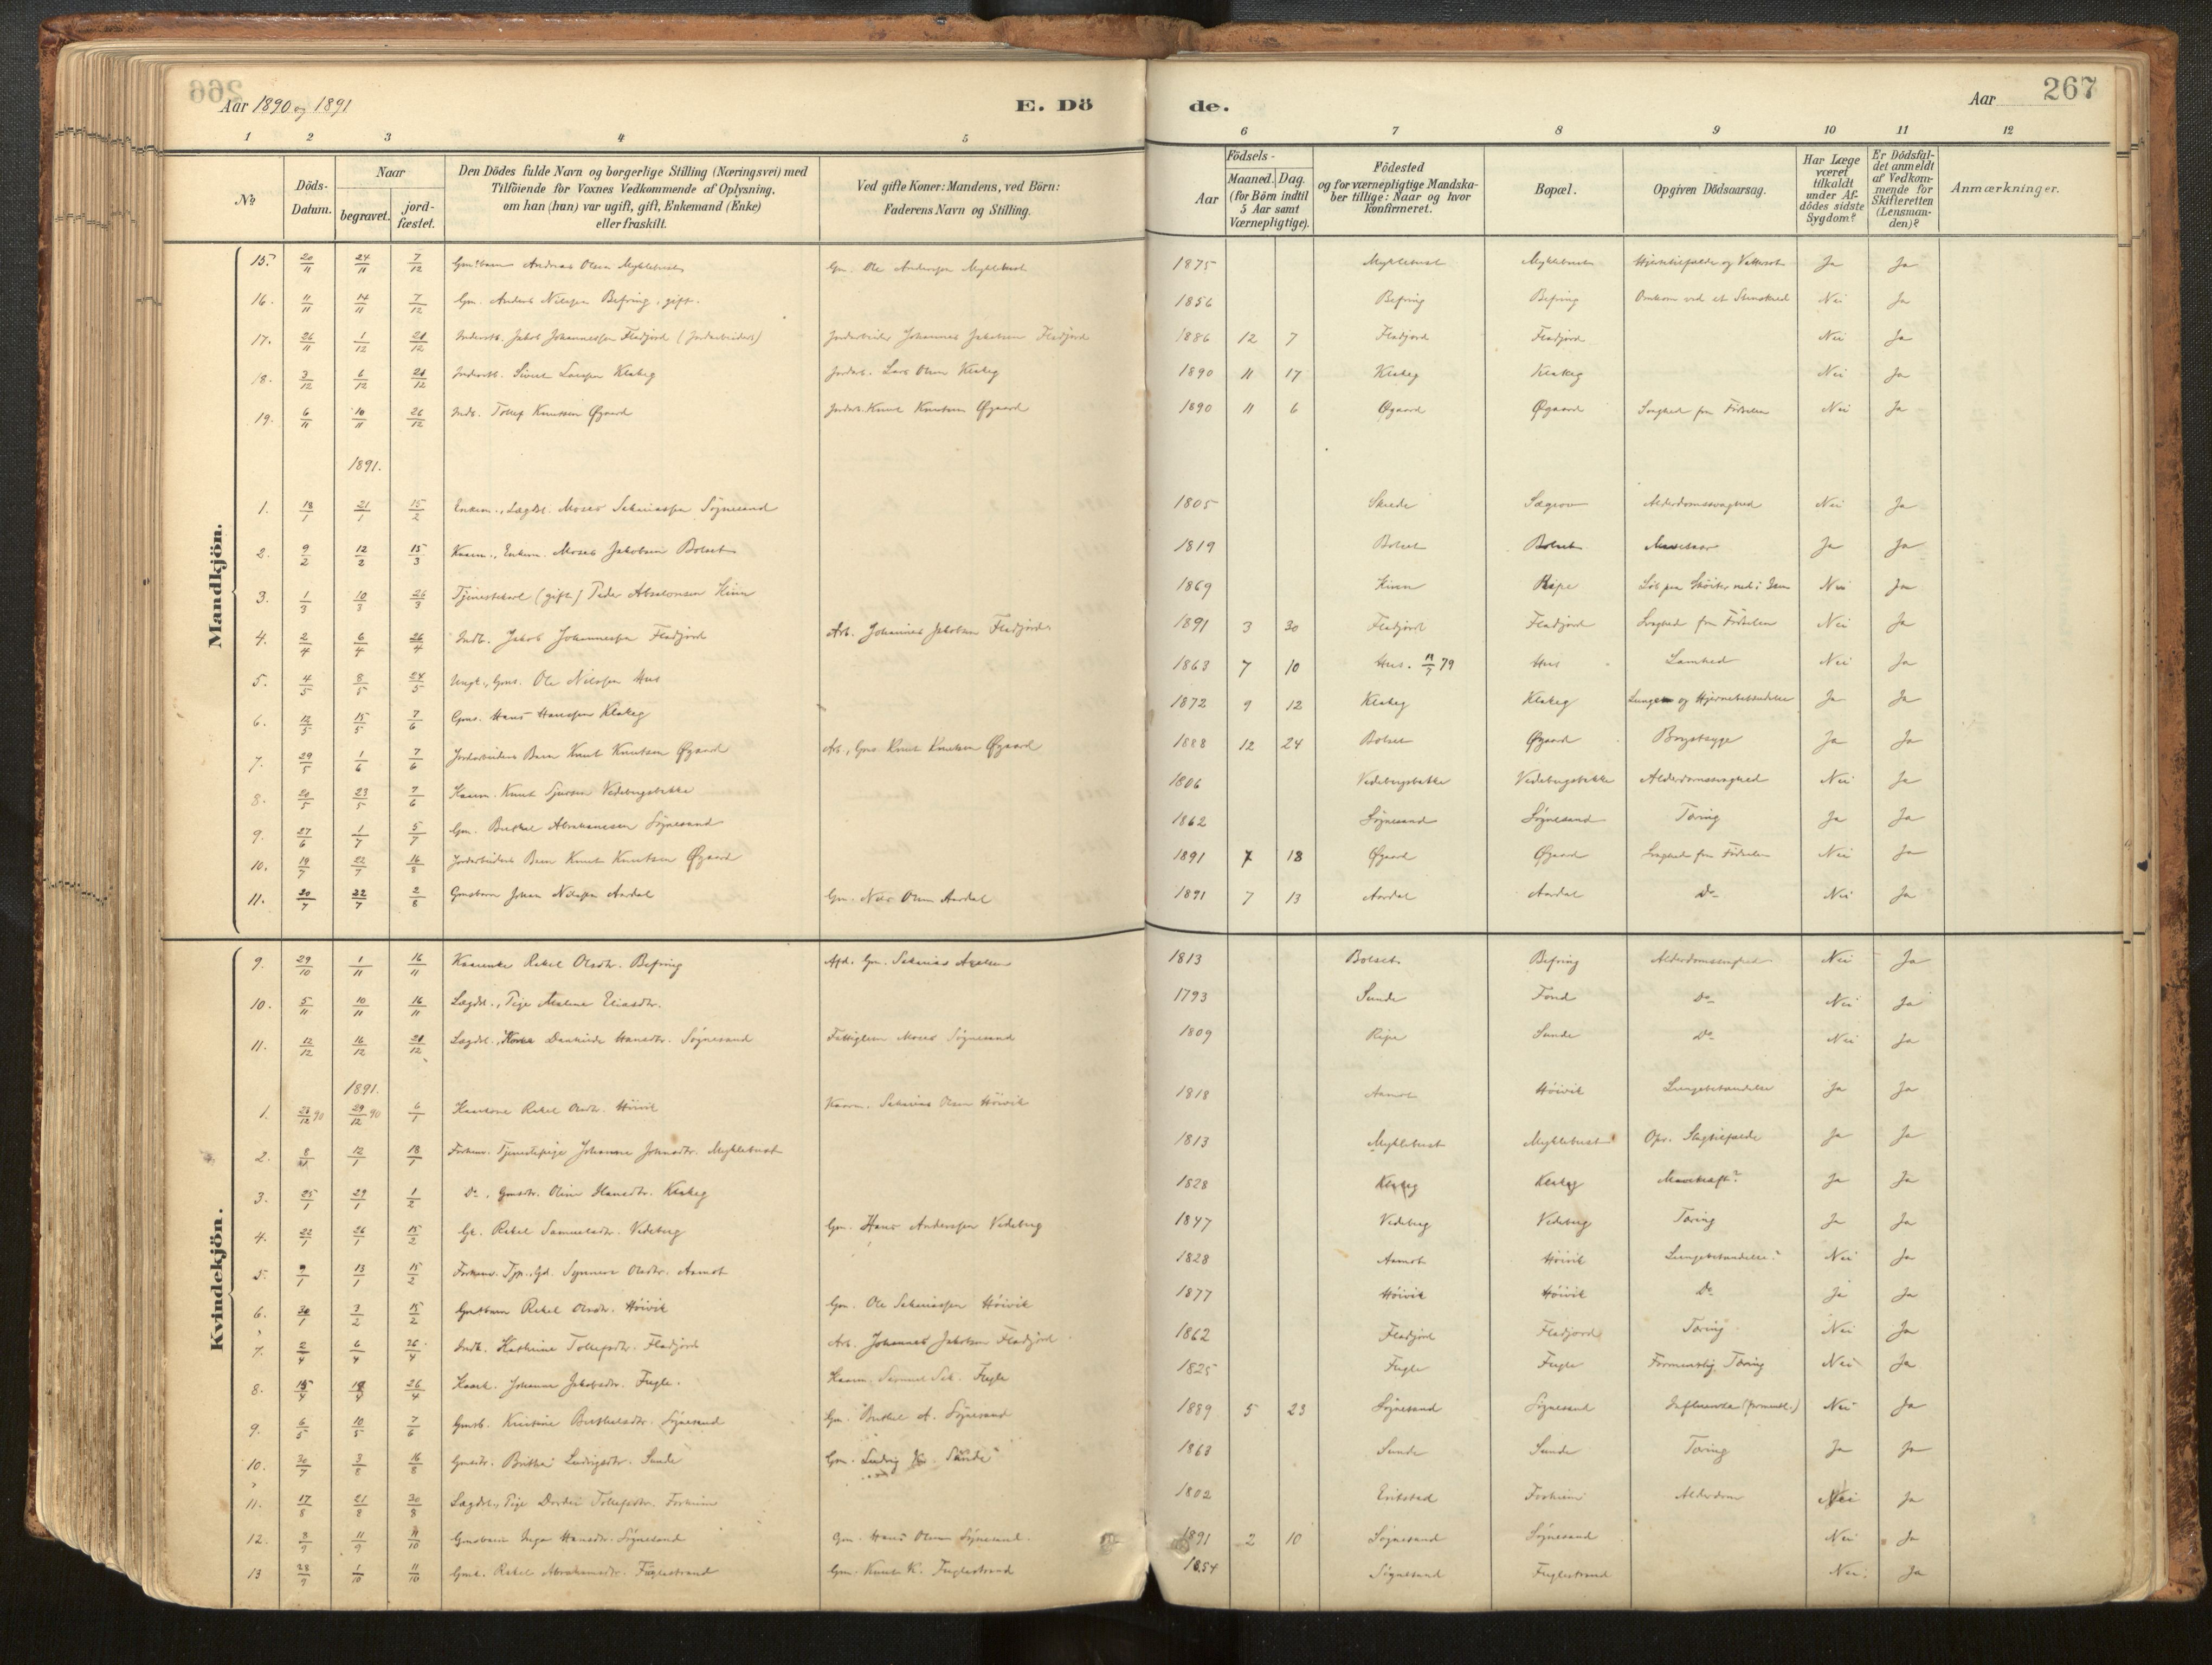 Aar 1890 og 1891
E. Dö
de.
Aar
267
1 2 3 4 5 6 7 8 9 10 11 12
No
Döds-Datum.
Naar
begravet.
jordfæstet.
Den Dödes fulde Navn og borgerlige Stilling (Næringsvei) med
Tilföiende for Voxnes Vedkommende af Oplysning,
om han (hun) var ugift, gift, Enkemand (Enke)
eller fraskilt.
Ved gifte Koner: Mandens, ved Börn:
Faderens Navn og Stilling.
Aar
Födsels-
Maaned. Dag.
(for Börn indtil
5 Aar samt
Værnepligtige).
Födested
og for værnepligtige Mandska-
ber tillige: Naar og hvor
konfirmeret.
Bopæl.
Opgiven Dödsaarsag.
Har Læge
været
tilkaldt
under Af-
dödes sidste
Sygdom?
Er Dödsfal-
det anmeldt
af Vedkom-
mende for
Skifteretten
(Lensman-
den)?
Anmærkninger.
Mandkjön.
15. 20/11 24/11 7/12 Andreas Olsen Myklebust Gm. Ole Andersen Myklebust 1875 Myklebust Myklebust Ja Ja
16. 11/11 14/11 7/12 Gm. Anders Nilssen Befring, gift. 1856 Befring Befring Omkom ved et Stenskred Nei Ja
17. 26/11 1/12 21/12 Jakob Johannessen Fladjord (Jordarbeiders) Jordarbeider Johannes Jakobsen Fladjord 1886 12 7 Fladjord Fladjord Nei Ja
18. 3/12 6/12 21/12 Sivert Larssen Klakeg Jordarb. Lars Olsen Klakeg 1890 11 17 Klakeg Klakeg Nei Ja
19. 6/11 10/11 26/12 Indb. Tollef Knutsen Øgaard Jordarb. Knut Knutsen Øgaard 1890 11 6 Øgaard Øgaard Svaghed fra Födselen Nei Ja
1891.
1. 18/1 21/1 15/2 Enkem., Lægdsl. Moses Sakariassen Sögnesand 1805 Skrede Sægrov Alderdomssvaghed Nei Ja
2. 9/2 12/2 15/3 Kaarm., Enkem. Moses Jakobsen Bolset 1819 Bolset Bolset Mavesaar Ja Ja
3. 1/3 10/3 26/3 Tjenestekarl (gift) Peder Absalonsen Kinn 1869 Kinn Ripe Löb paa Sköiter ned i Nei Ja
4. 2/4 6/4 26/4 Indb. Jakob Johannessen Fladjord Arb. Johannes Jakobsen Fladjord 1891 3 30 Fladjord Fladjord Svaghed fra Födselen Nei Ja
5. 4/5 8/5 24/5 Ungk., Gms. Ole Nilssen Hus 1863 7 10 Hus. 79 Hus Lamhed Nei Ja
6. 12/5 15/5 7/6 Gms. Hans Hanssen Klakeg 1872 9 12 Klakeg Klakeg Lunge og Hjernebetændelse Ja Ja
7. 29/5 1/6 7/6 Jordarbeiders Barn Knut Knutsen Øgaard Arb., Gms. Knut Knutsen Øgaard 1888 12 24 Bolset Øgaard Brystsyge Ja Ja
8. 20/5 23/5 7/6 Kaarm. Knut Sjursen Vedebugsbakke 1806 Vedebugsbakke Vedebugsbakke Alderdomssvaghed Nei Ja
9. 27/6 1/7 5/7 Gm. Berthel Abrahamsen Sögnesand 1862 Sögnesand Sögnesand Tæring Ja Ja
10. 19/7 22/7 16/8 Jordarbeiders Barn Knut Knutsen Øgaard 1891 7 18 Øgaard Øgaard Svaghed fra Födselen Nei Ja
11. 20/7 22/7 2/8 Gmsbarn Johan Nilssen Aardal Gm. Nils Olsen Aardal 1891 7 13 Aardal Aardal Do Nei Ja
Kvindekjön.
9. 29/10 1/11 16/11 Kaarenke Rakel Olsdtr. Befring Afd. Gm. Sakarias Axelsen 1813 Bolset Befring Alderdomssvaghed Nei Ja
10. 5/11 10/11 16/11 Lægdsl., Pige Malene Eliasdtr. 1793 Sunde Fond Do Nei Ja
11. 12/12 16/12 21/12 Lægdsl., Kone Hansdtr. Sögnesand Fattiglem Moses Sögnesand 1809 Ripe Sunde Do Nei Ja
1891.
1. 23/12 90 29/12 90 6/1 Kaarkone Rakel Olsdtr. Höivik Kaarm. Sakarias Olsen Höivik 1818 Aamot Höivik Lungebetændelse Ja Ja
2. 8/1 12/1 18/1 Tjenestepige Johanne Johnsdtr. Myklebust 1813 Myklebust Myklebust Opr. Slagtilfælde Ja Ja
3. 25/1 29/1 1/2 Do, Gmsdtr. Oline Hansdtr. Klakeg 1828 Klakeg Klakeg Mavekræft? Ja Ja
4. 22/1 26/1 15/2 Gk. Rakel Samuelsdtr. Vedeberg Gm. Hans Anderssen Vedeberg 1847 Vedeberg Vedeberg Tæring Ja Ja
5. 9/1 13/1 15/2 Synneve Olsdtr. Aamot 1828 Aamot Höivik Lungebetændelse? Nei Ja
6. 30/1 3/2 15/2 Gmsbarn Rakel Olsdtr. Höivik Gm. Ole Sakariassen Höivik 1877 Höivik Höivik Do Ja Ja
7. 2/4 6/4 26/4 Indk. Kathrine Tollefsdtr. Fladjord Arb. Johannes Jakobsen Fladjord 1862 Fladjord Fladjord Tæring Nei Ja
8. 15/4 19/4 26/4 Kaark. Johanne Jakobsdtr. Fugle. Kaarm. Samuel Sak. Fugle 1825 Fugle Fugle Formentlig Tæring Nei Ja
9. 6/5 10/5 7/6 Gmsb. Kristine Berthelsdtr. Sögnesand Gm. Berthel A. Sögnesand 1889 5 23 Sögnesand Sögnesand Influenza (formentl.) Nei Ja
10. 30/7 3/8 16/8 Gmsdr. Brithe Ludvigsdtr. Sunde Gm. Ludvig Sunde 1863 Sunde Sunde Tæring Ja Ja
11. 17/8 21/8 30/8 Lægdsl., Pige Dorthe Tollefsdtr. Forheim 1802 Eritstad Forheim Alderdom Nei Ja
12. 8/9 11/9 11/10 Gmsbarn Inga Hansdtr. Sögnesand Gm. Hans Olsen Sögnesand. 1891 2 10 Sögnesand Sögnesand Nei Ja
13 28/9 1/10 11/10 Gmk. Rakel Abrahamsdtr. Fuglestrand Gm. Knut K. Fuglestrand 1854 Sögnesand Fuglestrand Nei. Ja